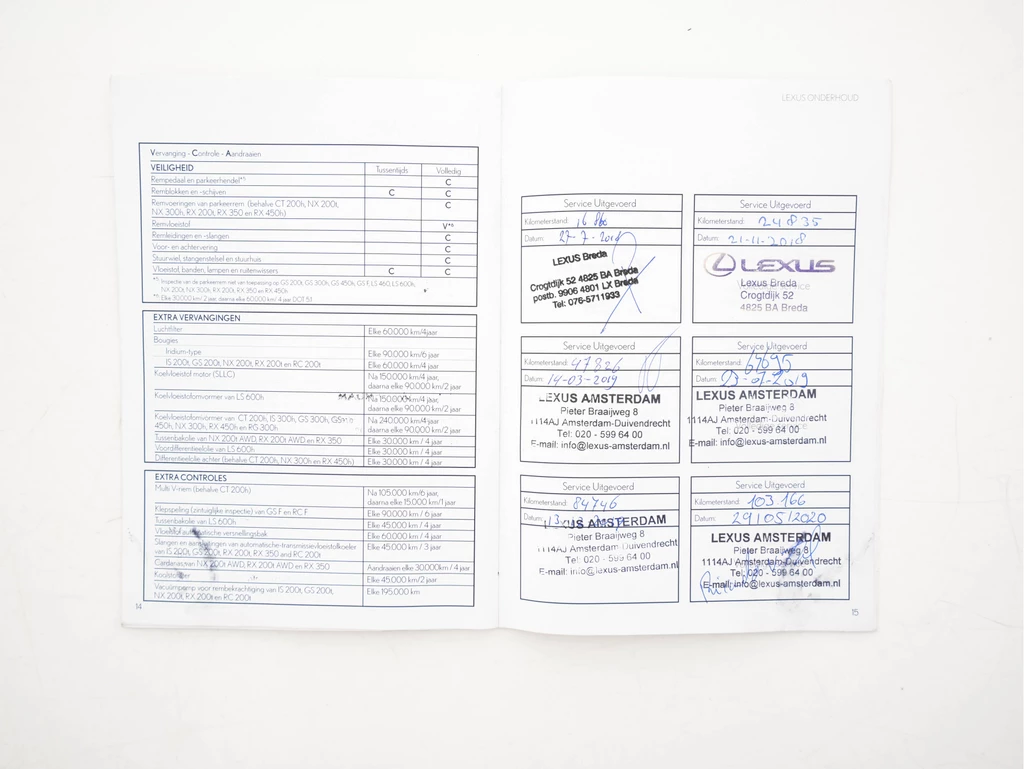 Vervanging - Controle - Aandraaien
VEILIGHEID Tussentijds Volledig
Rempedaal en parkeerhendel*¹ C
Remblokken en -schijven C C
Remvoeringen van parkeerrem (behalve CT 200h, NX 200t, C
NX 300h, RX 200t, RX 350 en RX 450h)
Remvloeistof V*²
Remleidingen en -slangen C
Voor- en achtervering C
Stuurwiel, stangenstelsel en stuurhuis C
Vloeistof, banden, lampen en ruitenwissers C C
*¹: Inspectie van de parkeerrem niet van toepassing op GS 200t, GS 300h, GS 450h, GS F, LS 460, LS 600h,
NX 200t, NX 300h, RX 200t, RX 350 en RX 450h
*²: Elke 30.000 km/ 2 jaar, daarna elke 60.000 km/ 4 jaar DOT 5.1
EXTRA VERVANGINGEN
Luchtfilter Elke 60.000 km/4jaar
Bougies
Iridium-type Elke 90.000 km/6 jaar
IS 200t, GS 200t, NX 200t, RX 200t en RC 200t Elke 60.000 km/4 jaar
Koelvloeistof motor (SLLC) Na 150.000 km/4 jaar,
daarna elke 90.000 km/2 jaar
Koelvloeistofomvormer van LS 600h Na 150.000km/4 jaar,
daarna elke 90.000 km/2 jaar
Koelvloeistofomvormer van CT 200h, IS 300h, GS 300h, GS Na 240.000 km/4 jaar
450h, NX 300h, RX 450h en RC 300h daarna elke 90.000 km/2 jaar
Tussenbakolie van NX 200t AWD, RX 200t AWD en RX 350 Elke 30.000 km / 4 jaar
Voordifferentieelolie van LS 600h Elke 30.000 km / 4 jaar
Differentieelolie achter (behalve CT 200h, NX 300h en RX 450h) Elke 30.000 km / 4 jaar
EXTRA CONTROLES
Multi V-riem (behalve CT 200h) Na 105.000 km/6 jaar,
daarna elke 15.000 km/1 jaar
Klepspeling (ontuiglijke inspectie) van GS F en RC F Elke 90.000 km / 6 jaar
Tussenbakolie van LS 600h Elke 45.000 km / 4 jaar
Vloeistof automatische versnellingsbak Elke 60.000 km / 4 jaar
Slangen en aansluitingen van automatische-transmissievloeistofkoeler Elke 45.000 km / 3 jaar
van IS 200t, GS 200t, RX 200t, RX 350 and RC 200t
Cardanas van NX 200t AWD, RX 200t AWD en RX 350 Aandraaien elke 30.000km / 4 jaar
Koolstoffilter Elke 45.000 km/2 jaar
Vacuümpomp voor rembekrachtiging van IS 200t, GS 200t, Elke 195.000 km
NX 200t, RX 200t en RC 200t
14
LEXUS ONDERHOUD
Service Uitgevoerd
Kilometerstand:
Datum: 27-7-2018
LEXUS Breda
Crogtdijk 52 4825 BA Breda
postb. 9906 4801 LX Breda
Tel: 076-5711933
Service Uitgevoerd
Kilometerstand: 24835
Datum: 21-11-2018
LEXUS
Lexus Breda
Crogtdijk 52
4825 BA Breda
Service Uitgevoerd
Kilometerstand: 47826
Datum: 14-03-2019
LEXUS AMSTERDAM
Pieter Braaijweg 8
1114AJ Amsterdam-Duivendrecht
Tel: 020 - 599 64 00
E-mail: info@lexus-amsterdam.nl
Service Uitgevoerd
Kilometerstand: 67695
Datum: 23-07-2019
LEXUS AMSTERDAM
Pieter Braaijweg 8
1114AJ Amsterdam-Duivendrecht
Tel: 020 - 599 64 00
E-mail: info@lexus-amsterdam.nl
Service Uitgevoerd
Kilometerstand: 84746
Datum:
LEXUS AMSTERDAM
Pieter Braaijweg 8
1114AJ Amsterdam-Duivendrecht
Tel: 020 - 599 64 00
E-mail: info@lexus-amsterdam.nl
Service Uitgevoerd
Kilometerstand: 103 166
Datum: 29/05/2020
LEXUS AMSTERDAM
Pieter Braaijweg 8
1114AJ Amsterdam-Duivendrecht
Tel: 020 - 599 64 00
E-mail: info@lexus-amsterdam.nl
15